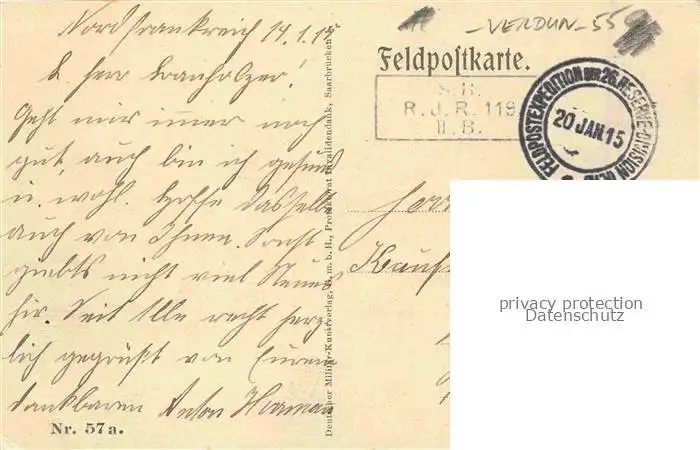 Nordfrankreich 14.1.15
L. Herr Kranholzer!
Geht mir immer noch
gut, auch bin ich gesund
u. wohl. Hoffe dasselbe
auch von Ihnen. Sonst
giebts nicht viel Neues
hir. Seit Alle recht herz-
lich gegrüßt von Eurem
dankbaren Anton
Nr. 57a.
Deutscher Militär-Kunstverlag, G. m. b. H., Protektorat Invalidendank, Saarbrücken
- VERDUN - 55
Feldpostkarte.
S. B.
R. J. R. 119
II. B.
FELDPOSTEXPEDITION DER 26. RESERVE-DIVISION
20 JAN. 15
Herrn
Kauf
privacy protection
Datenschutz